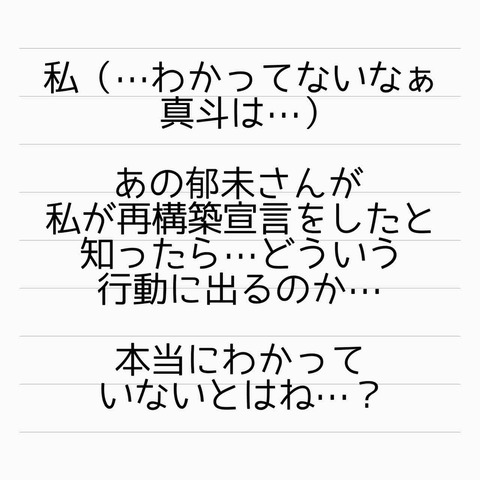 私（…わかってないなぁ
真斗は…）
あの郁未さんが
私が再構築宣言をしたと
知ったら…どういう
行動に出るのか…
本当にわかって
いないとはね…？